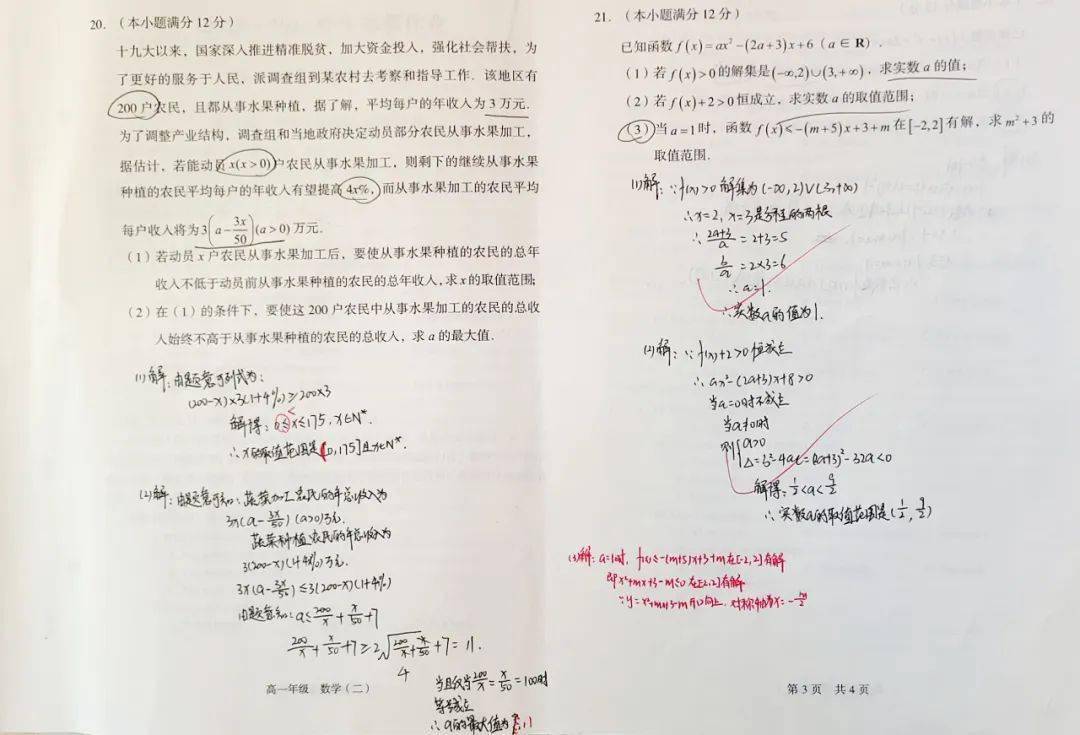 20. （本小题满分 12 分）
十九大以来，国家深入推进精准脱贫，加大资金投入，强化社会帮扶，为
了更好的服务于人民，派调查组到某农村去考察和指导工作．该地区有
200 户农民，且都从事水果种植，据了解，平均每户的年收入为 3 万元．
为了调整产业结构，调查组和当地政府决定动员部分农民从事水果加工，
据估计，若能动员 x(x>0) 户农民从事水果加工，则剩下的继续从事水果
种植的农民平均每户的年收入有望提高 4x%，而从事水果加工的农民平均
每户收入将为 3(a-3x/50)(a>0) 万元．
（1）若动员 x 户农民从事水果加工后，要使从事水果种植的农民的总年
收入不低于动员前从事水果种植的农民的总年收入，求 x 的取值范围；
（2）在（1）的条件下，要使这 200 户农民中从事水果加工的农民的总收
入始终不高于从事水果种植的农民的总收入，求 a 的最大值．
(1)解：由题意可列式为：
(200-x)×3(1+4%)≥200×3
解得：0≤x≤175, x∈N*.
<
∴x的取值范围是(0,175]且x∈N*.
(2)解：由题意可知：蔬菜加工农民的年总收入为
3x(a-3x/50) (a>0)万元.
蔬菜种植农民的年总收入为
3(200-x)(1+4%)万元.
3x(a-3x/50)≤3(200-x)(1+4%)
由题意知：a≤200/x+x/50+7
200/x+x/50+7≥2√(200/x+x/50)+7=11.
4
当且仅当200/x=x/50=100时
等号成立
∴a的最大值为11
高一年级 数学（二）
21. （本小题满分 12 分）
已知函数 f(x)=ax²-(2a+3)x+6（a∈R）．
（1）若 f(x)>0 的解集是 (-∞,2)∪(3,+∞)，求实数 a 的值；
（2）若 f(x)+2>0 恒成立，求实数 a 的取值范围；
（3）当 a=1 时，函数 f(x)≤-(m+5)x+3+m 在 [-2,2] 有解，求 m²+3 的
取值范围．
(1)解：∵f(x)>0解集为(-∞,2)∪(3,+∞)
∴x=2, x=3是方程的两根
∴(2a+3)/a=2+3=5
6/a=2×3=6
∴a=1.
∴实数a的值为1.
(2)解：∵f(x)+2>0恒成立
∴ax²-(2a+3)x+8>0
当a=0时不成立
当a≠0时
则{a>0
Δ=b²-4ac=(2a+3)²-32a<0
解得：1/2<a<9/2
∴实数a的取值范围是(1/2, 9/2)
(3)解：a=1时, f(x)≤-(m+5)x+3+m在[-2,2]有解
即x²+mx+3-m≤0在[-2,2]有解
∵y=x²+mx+3-m开口向上. 对称轴为x=-m/2
第 3 页 共 4 页